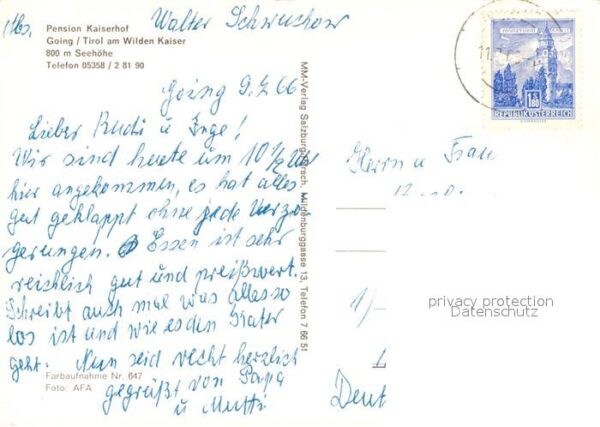 Abs. Walter
Pension Kaiserhof
Going / Tirol am Wilden Kaiser
800 m Seehöhe
Telefon 05358 / 2 81 90
Going 9.7.66
Lieber Rudi u. Inge!
Wir sind heute um 10 1/2 Uhr
hier angekommen, es hat alles
gut geklappt ohne jede Verzö-
gerungen. Essen ist sehr
reichlich gut und preißwert.
Schreibt auch mal was alles so
los ist und wie es den Kater
geht. Nun seid recht herzlich
gegrüßt von Papa
u Mutti
Farbaufnahme Nr. 647
Foto: AFA
MM-Verlag Salzburg-Parsch, Mildenburggasse 13, Telefon 7 66 51
REPUBLIK ÖSTERREICH
Herrn u Frau
privacy protection
Datenschutz
Deut